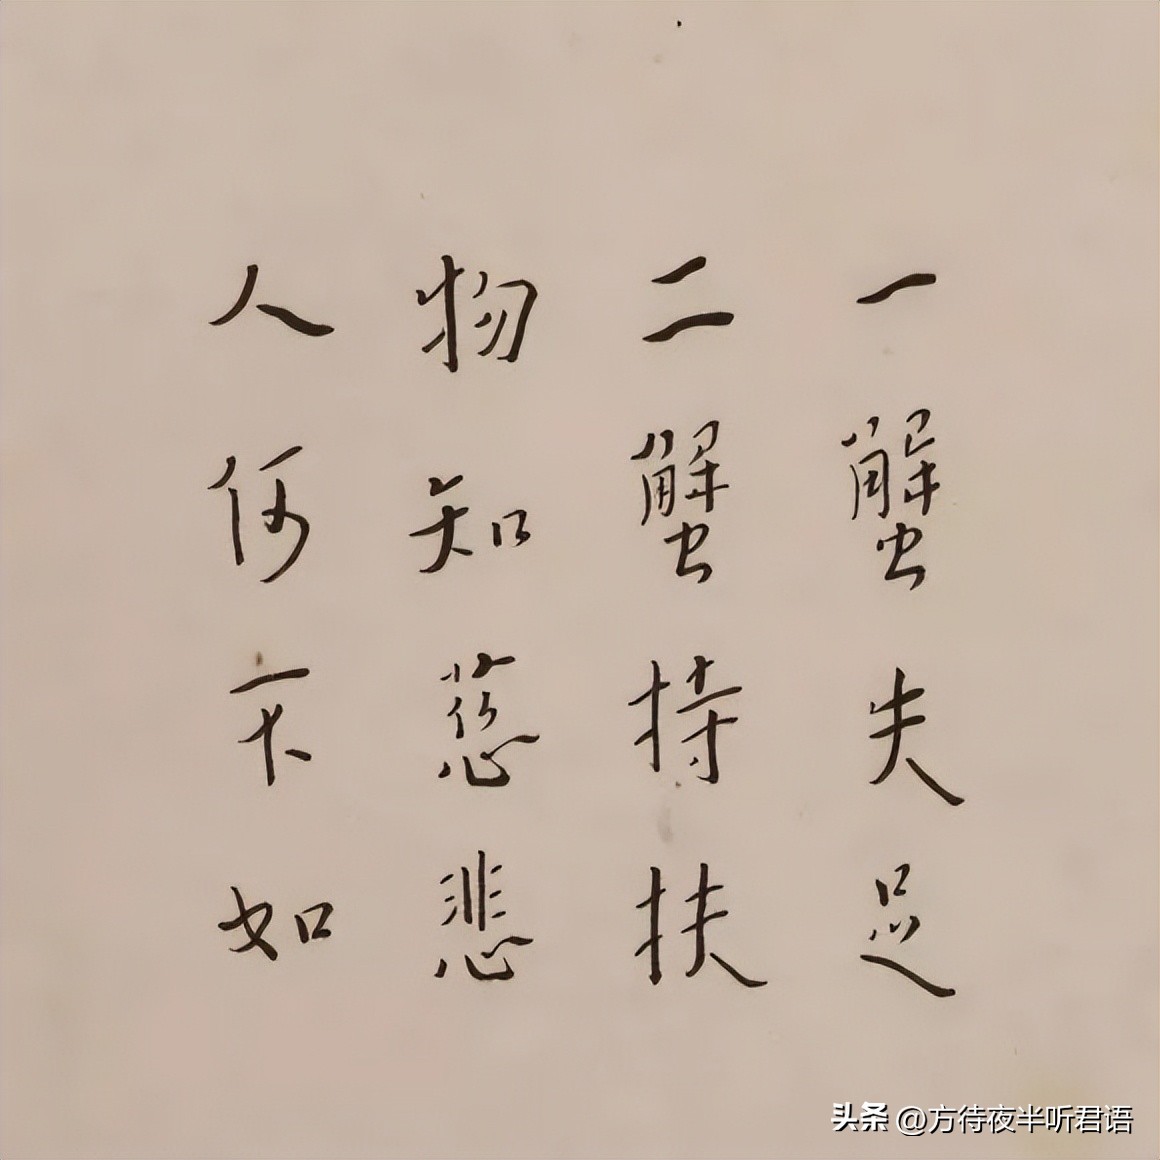 一蟹失足
二蟹持扶
物知慈悲
人何不如
头条 @方待夜半听君语